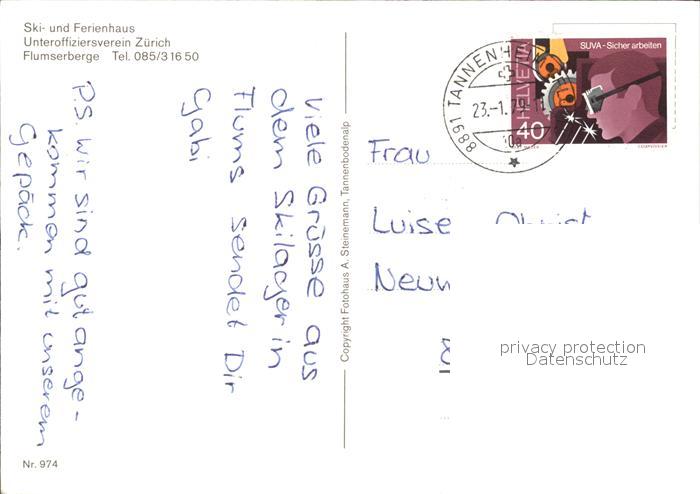 Ski- und Ferienhaus
Unteroffiziersverein Zürich
Flumserberge Tel. 085/3 16 50
Viele Grüsse aus
dem Skilager in
Flums sendet Dir
Gabi
P.S. Wir sind gut ange-
kommen mit unserem
Gepäck.
Nr. 974
Copyright Fotohaus A. Steinemann, Tannenbodenalp
8891 TANNENH
23.-1.79
SUVA - Sicher arbeiten
HELVETIA
40
Frau
Luise
privacy protection
Datenschutz